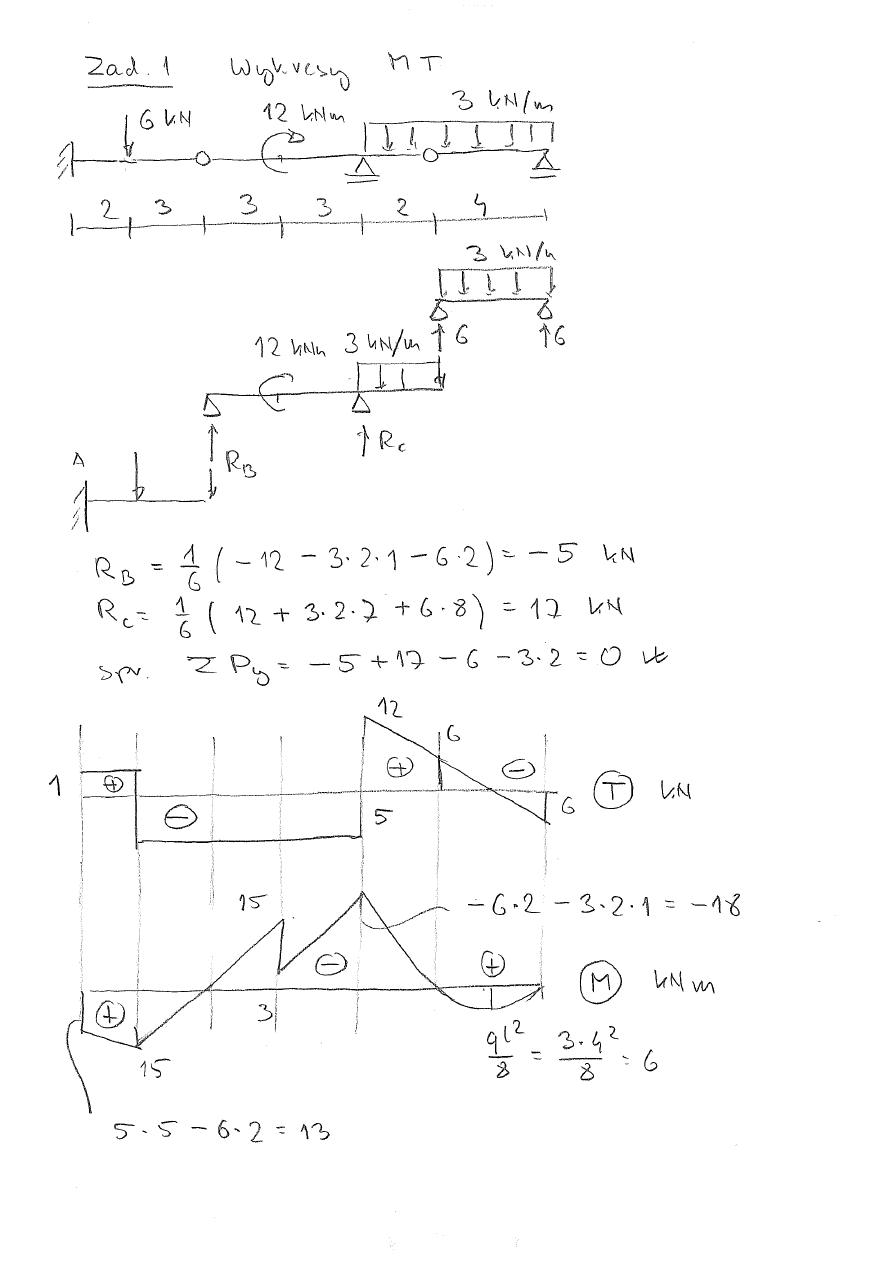 Zad. 1 Wykresy MT
3 kN/m
6 kN 12 kNm
2 3 3 3 2 4
3 kN/m
12 kNm 3 kN/m 6 6
A R_B R_C
R_B = 1/6 (-12 - 3·2·1 - 6·2) = -5 kN
R_C = 1/6 (12 + 3·2·7 + 6·8) = 17 kN
spr. Σ Py = -5 + 17 - 6 - 3·2 = 0
12
6
1 + + -
- 5 6 T kN
15 -6·2 - 3·2·1 = -18
- + M kNm
+ 3
15 ql²/8 = 3·4²/8 = 6
5·5 - 6·2 = 13